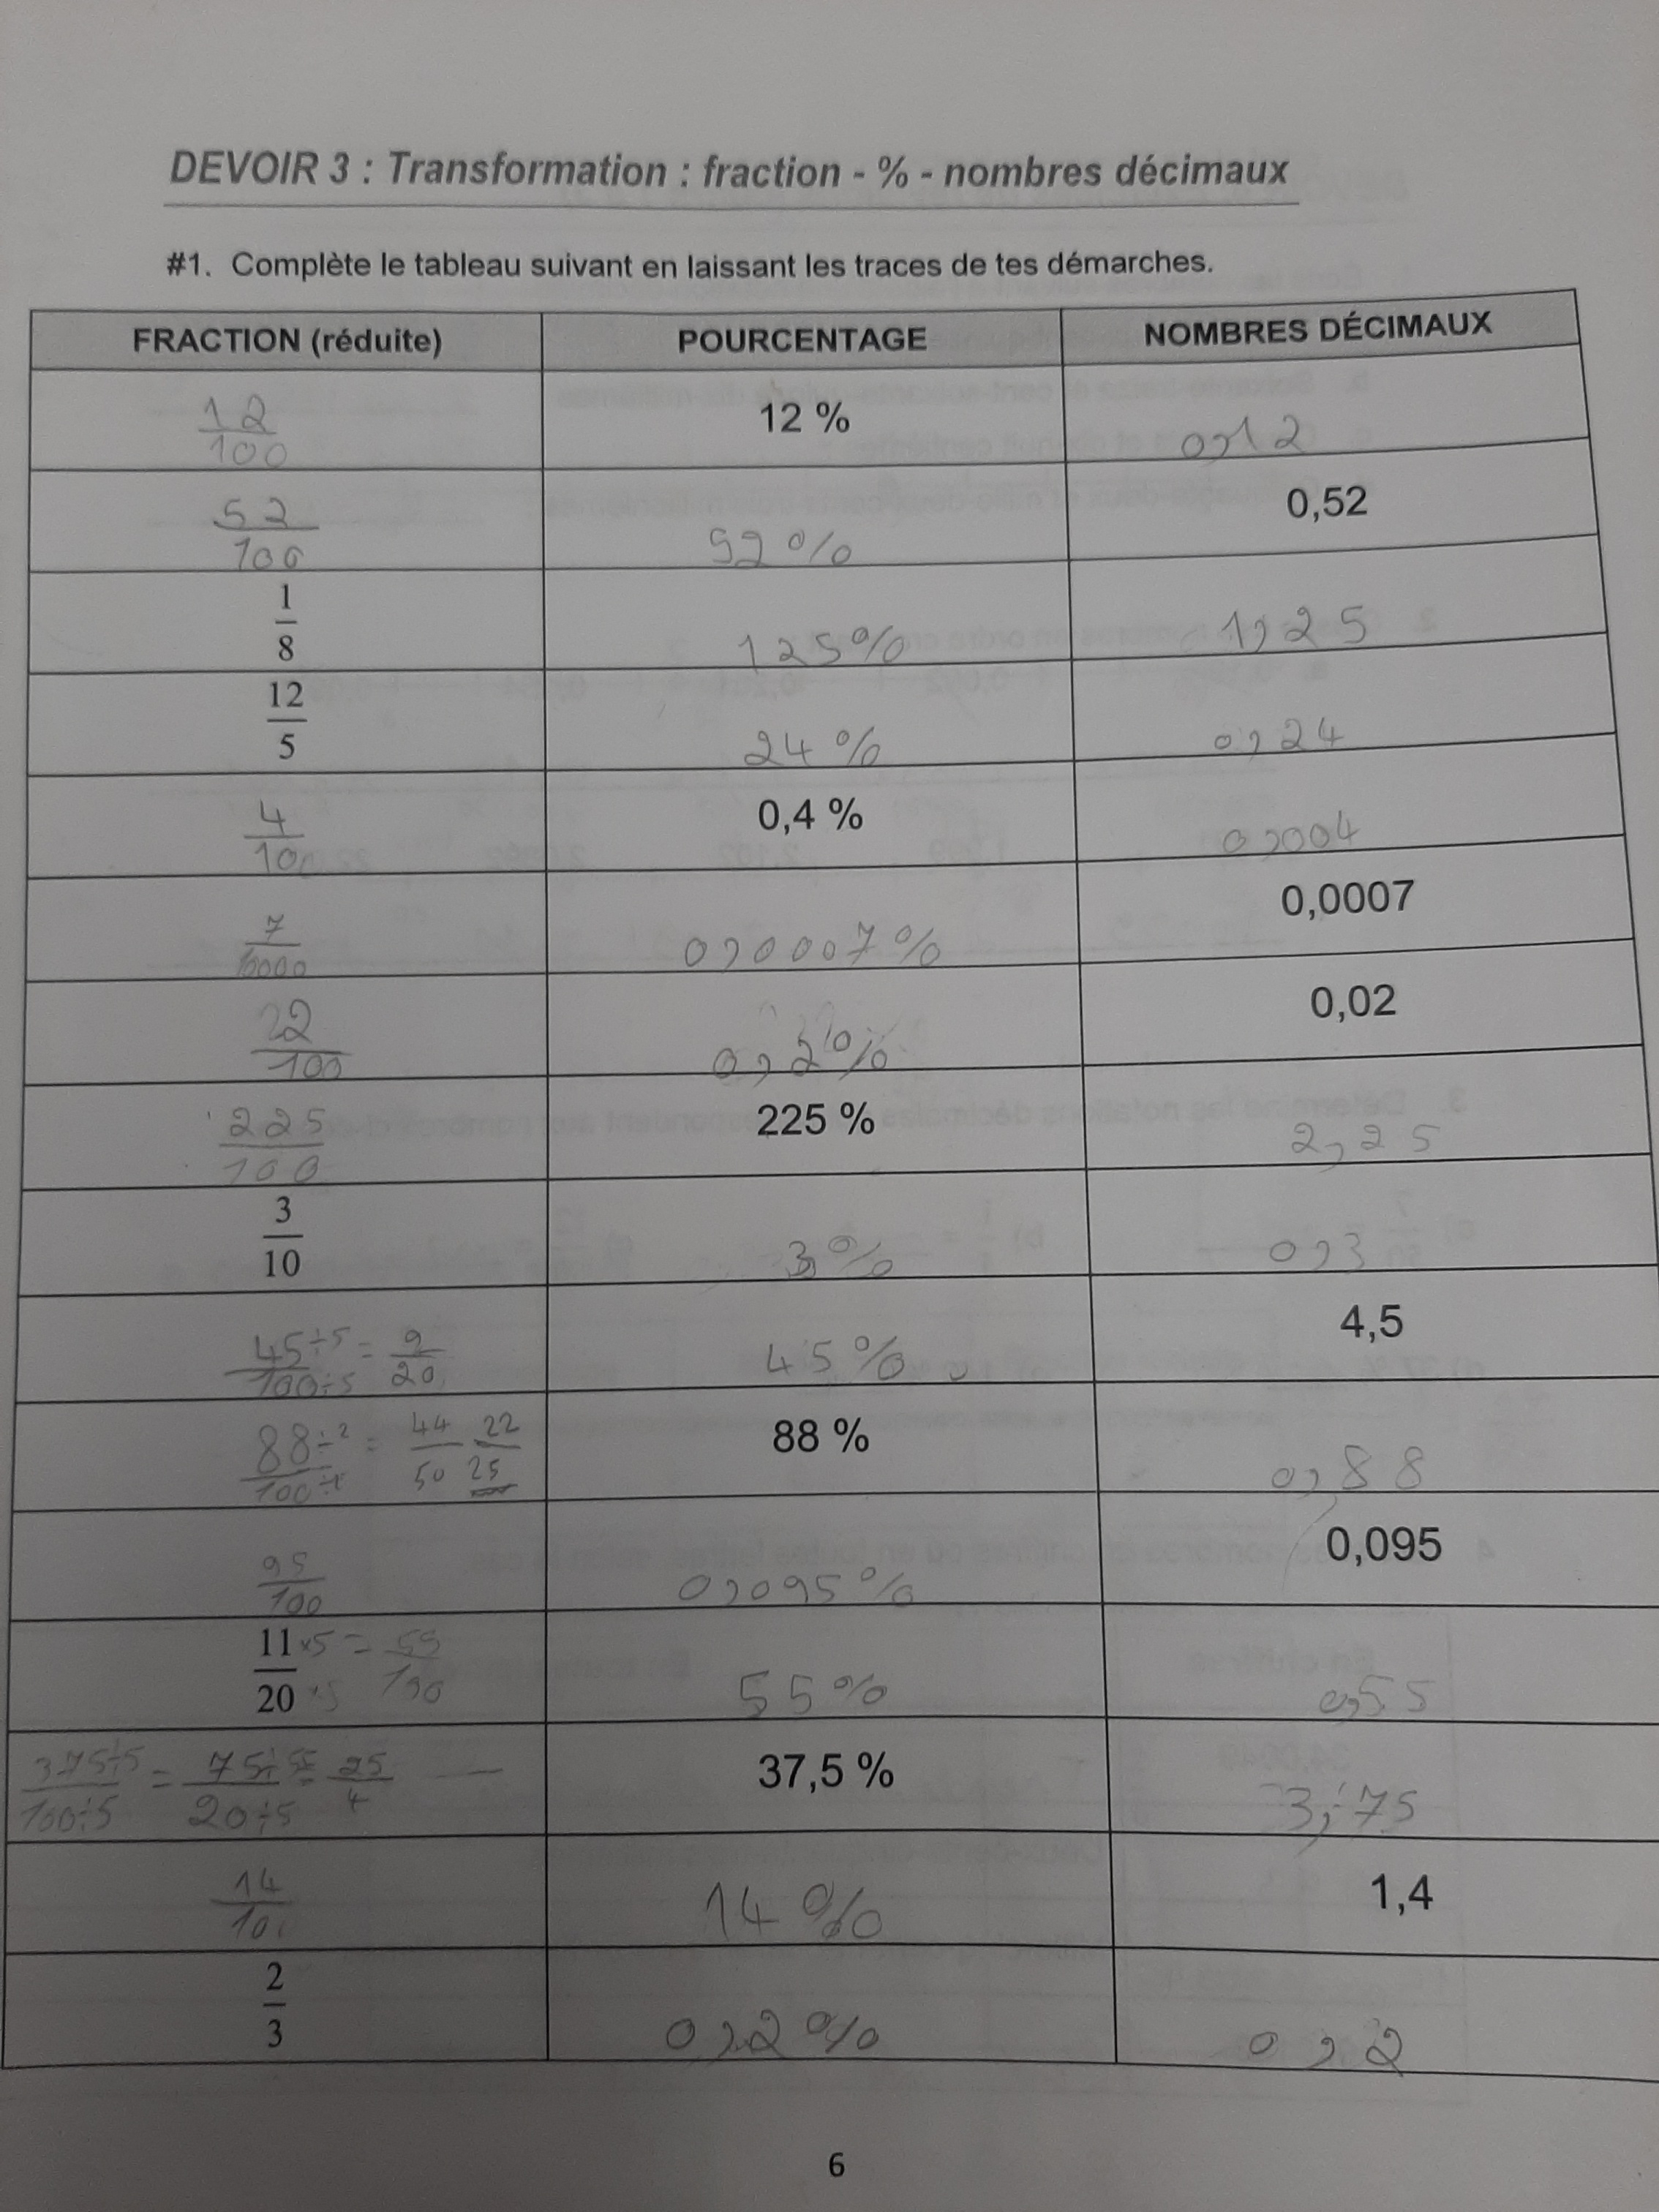 DEVOIR 3 : Transformation : fraction - % - nombres décimaux
#1. Complète le tableau suivant en laissant les traces de tes démarches.
FRACTION (réduite) POURCENTAGE NOMBRES DÉCIMAUX
12/100 12 % 0,12
52/100 52% 0,52
1/8 125% 1,25
12/5 24% 0,24
4/100 0,4 % 0,004
7/10000 0,0007% 0,0007
22/100 0,2% 0,02
225/100 225 % 2,25
3/10 3% 0,3
45÷5/100÷5 = 9/20 45% 4,5
88÷2/100÷2 = 44/50 22/25 88 % 0,88
95/100 0,095% 0,095
11×5/20×5 = 55/100 55% 0,55
375÷5/100÷5 = 75÷5/20÷5 = 25/4 37,5 % 3,75
14/100 14% 1,4
2/3 0,2% 0,2
6